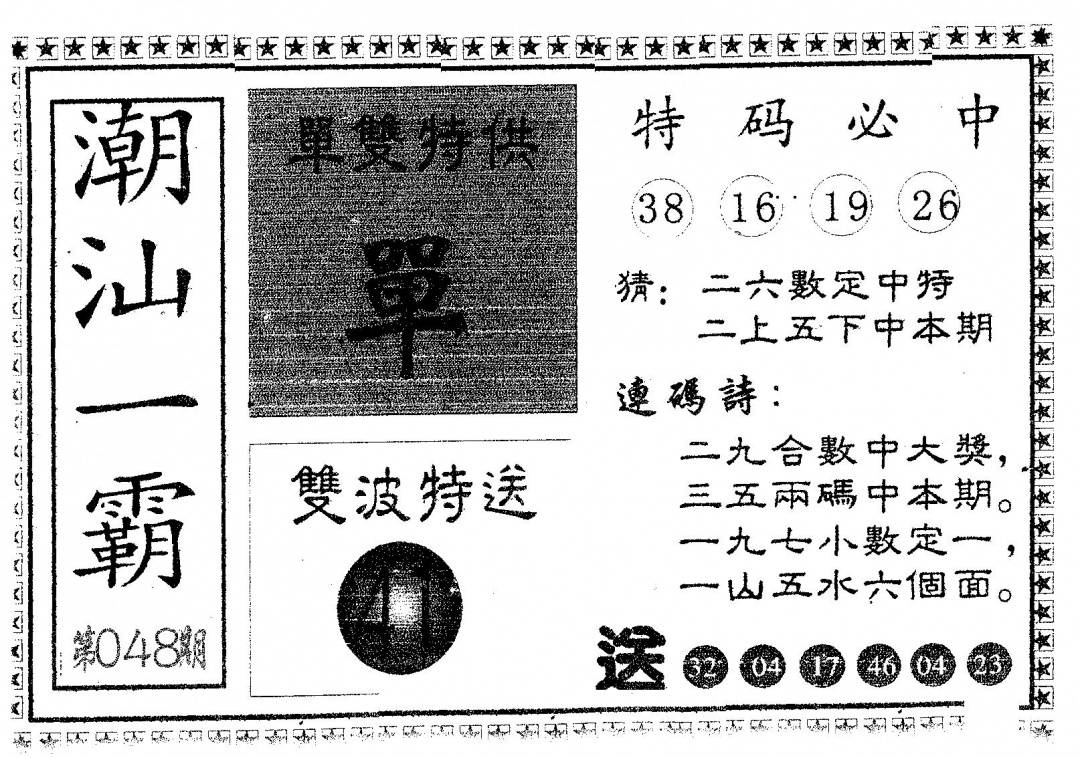 潮汕一霸
第048期
單雙特供
單
雙波特送
特码必中
38 16 19 26
猜：二六數定中特
二上五下中本期
連碼詩：
二九合數中大獎，
三五兩碼中本期。
一九七小數定一，
一山五水六個面。
送 32 04 17 46 04 23